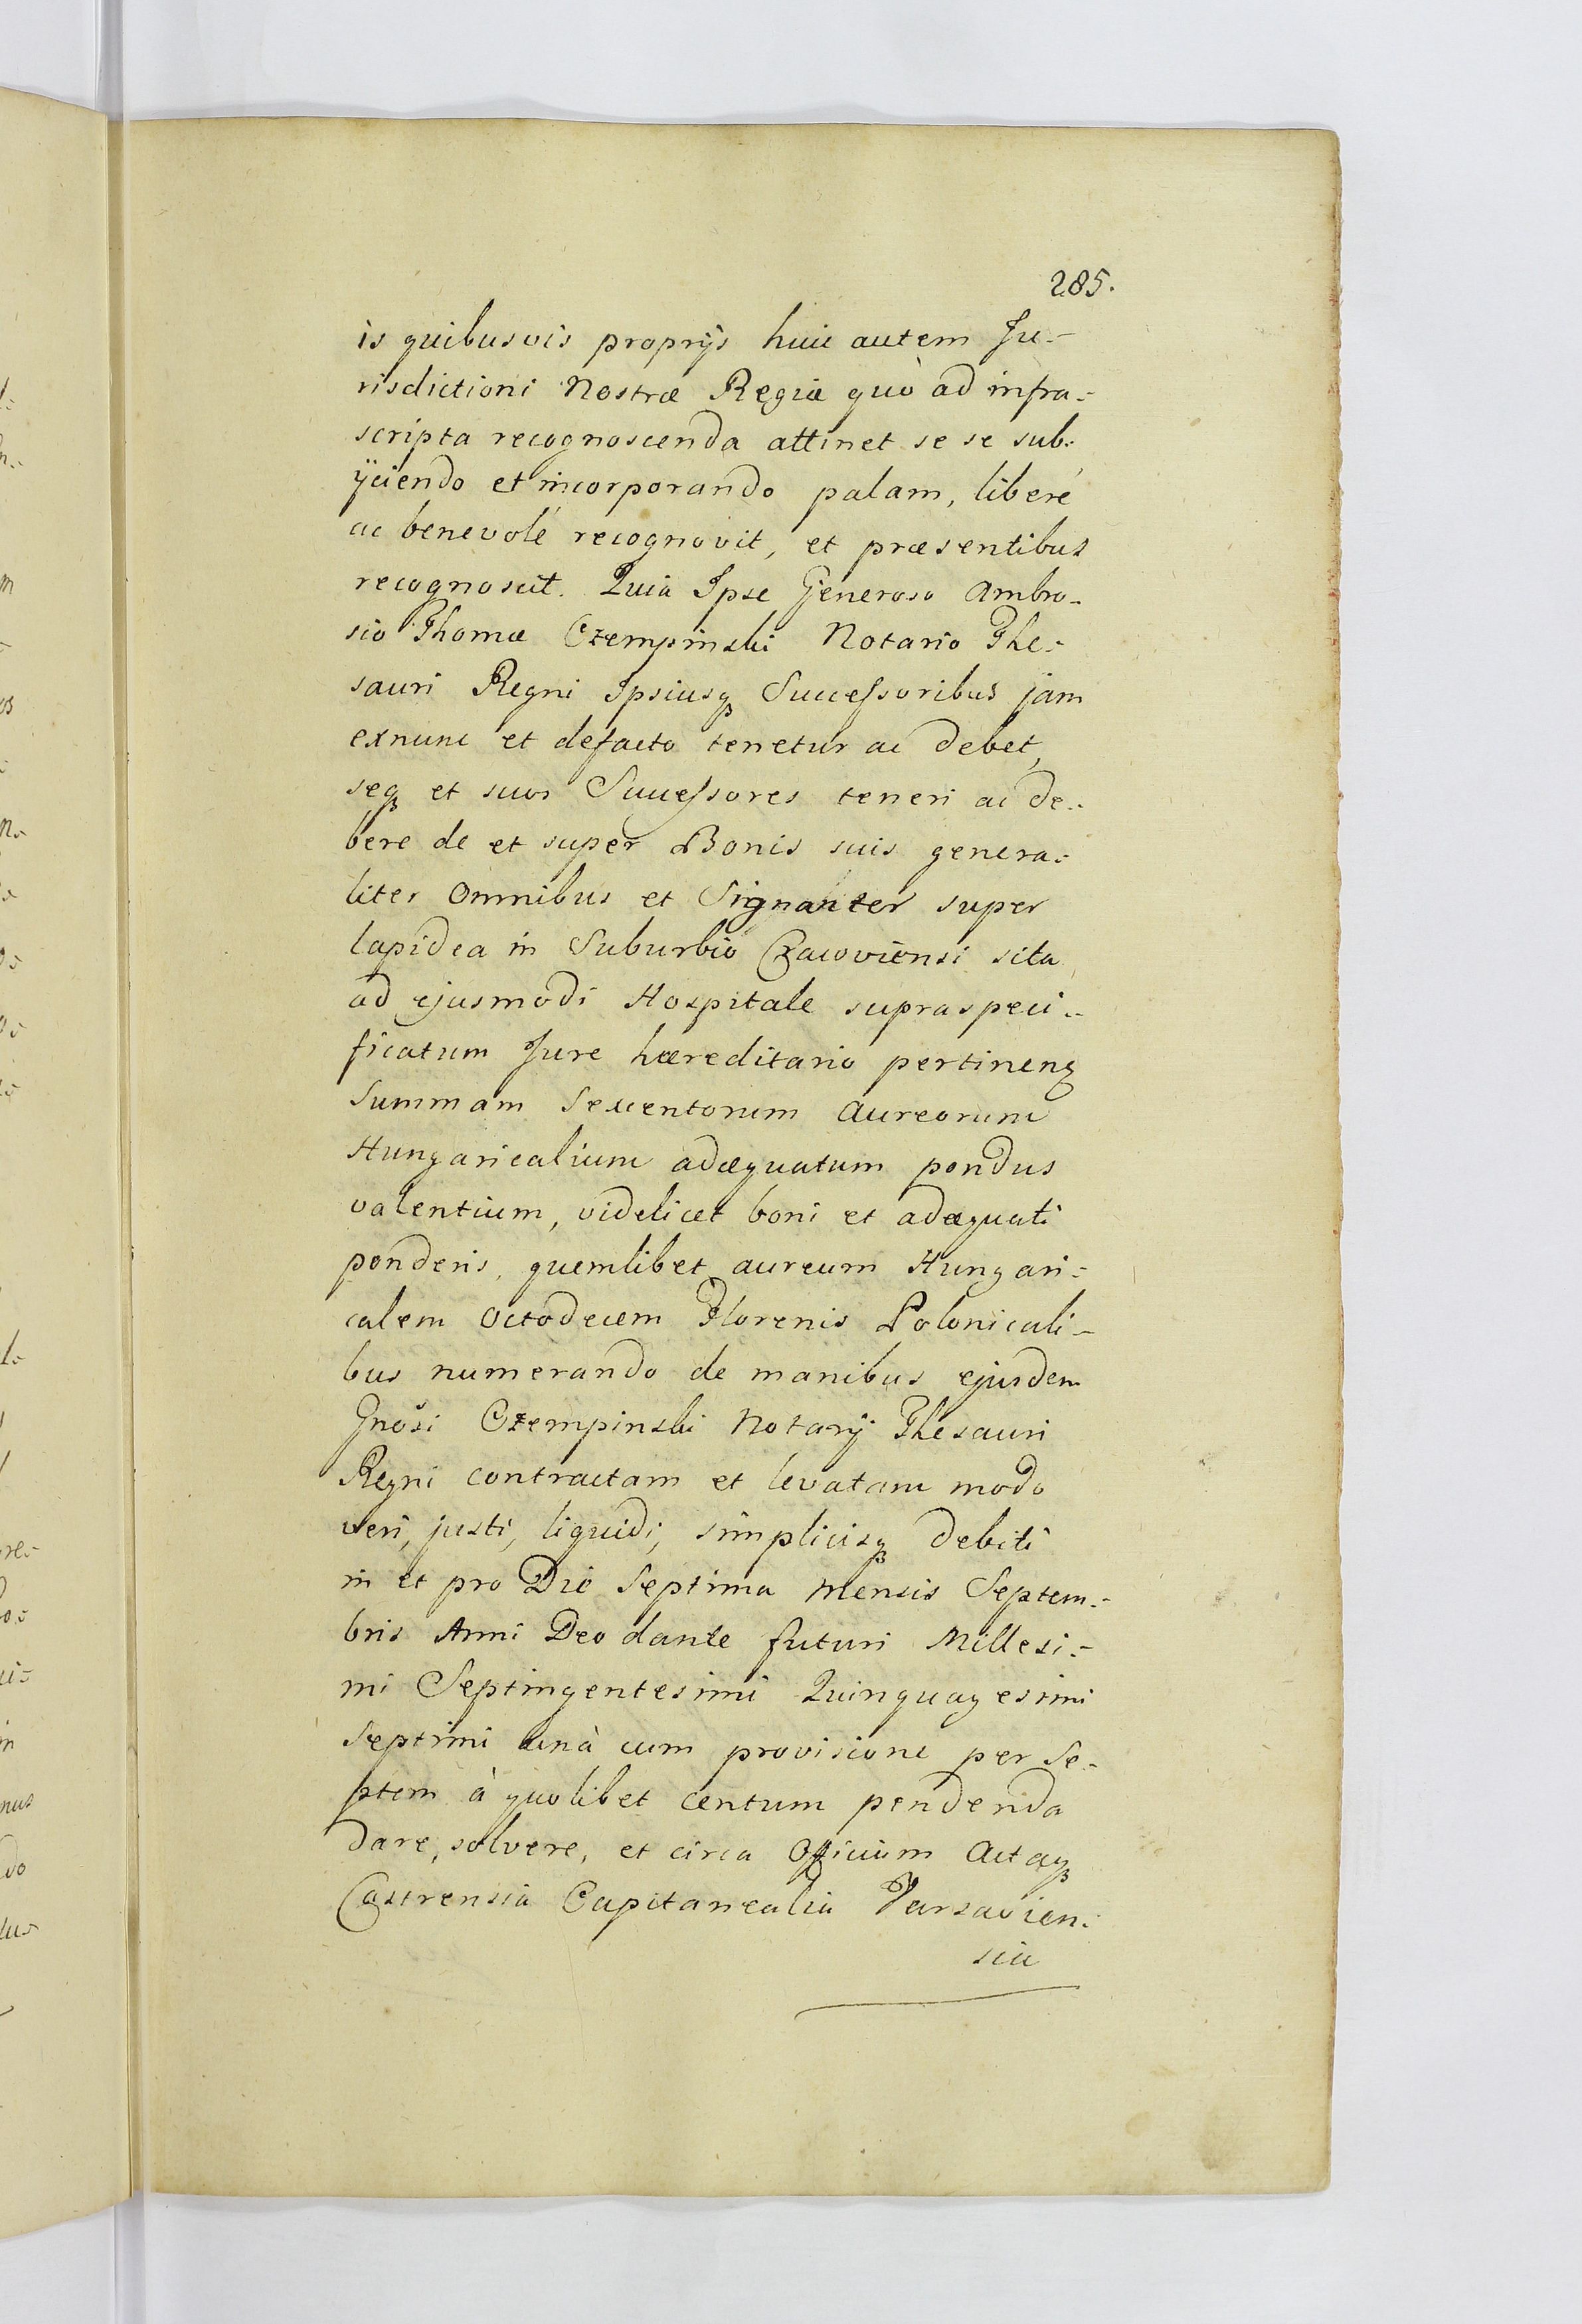 285.
is quibusvis proprijs huic autem Ju-
risdictioni Nostræ Regiæ quò ad infra-
scripta recognoscenda attinet se se sub-
ijciendo et incorporando palam, liberé
ac benevolé recognovit, et præsentibus
recognoscit. Quia Ipse Generoso Ambro-
sio Thomæ Czempinski Notario The-
sauri Regni Ipsiusqꝫ Successoribus jam
exnunc et defacto tenetur ac debet,
seqꝫ et suos Successores teneri ac de-
bere de et super Bonis suis genera-
liter omnibus et Signanter super
lapidea in Suburbio Cracoviensi sita
ad ejusmodi Hospitale supraspeci-
ficatum Jure hæreditario pertineng
Summam Sexcentorum Aureorum
Hungaricalium adæquatum pondus
valentium, videlicet boni et adæquati
ponderis, quemlibet aureum Hungari-
calem Octodecem Florenis Polonicali-
bus numerando de manibus ejusdem
Gnosi Czempinski Notarij Thesauri
Regni contractam et levatam modo
veri, justi, liquidi, simplicisqꝫ debiti
in et pro Die Septima Mensis Septem-
bris Anni Deo dante futuri Millesi-
mi Septingentesimi Quinquagesimi
Septimi unà cum provisione per Se-
ptem à quolibet centum pendenda
dare, solvere, et circa Officium Actaqꝫ
Castrensia Capitanealia Varsavien-
sia